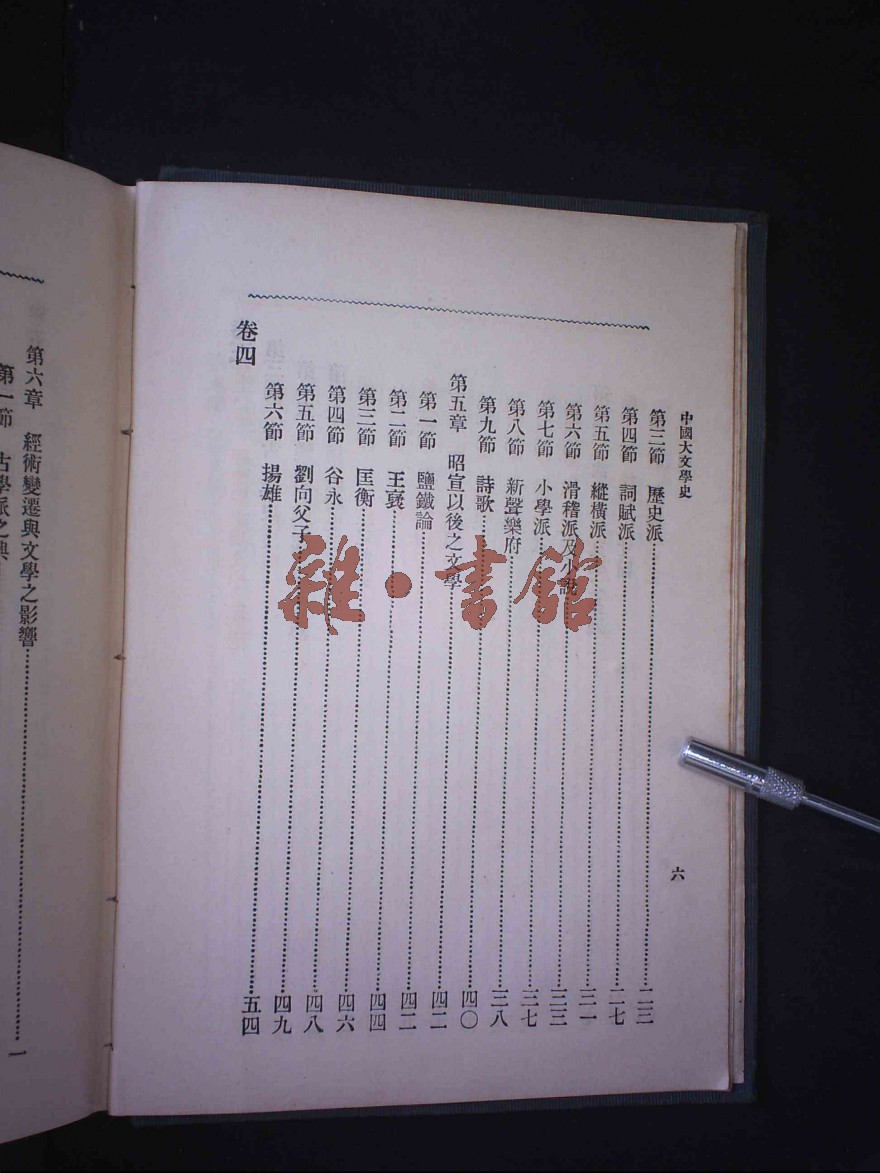 中國大文學史
六
第三節 歷史派……二三
第四節 詞賦派……二七
第五節 縱橫派……三一
第六節 滑稽派及小說……三三
第七節 小學派……三七
第八節 新聲樂府……三八
第九節 詩歌……四〇
第五章 昭宣以後之文學
第一節 鹽鐵論……四二
第二節 王襃……四二
第三節 匡衡……四四
第四節 谷永……四六
第五節 劉向父子……四八
第六節 揚雄……四九
五四
卷四
第六章 經術變遷與文學之影響……一
第一節 古學派之興
雜·書館